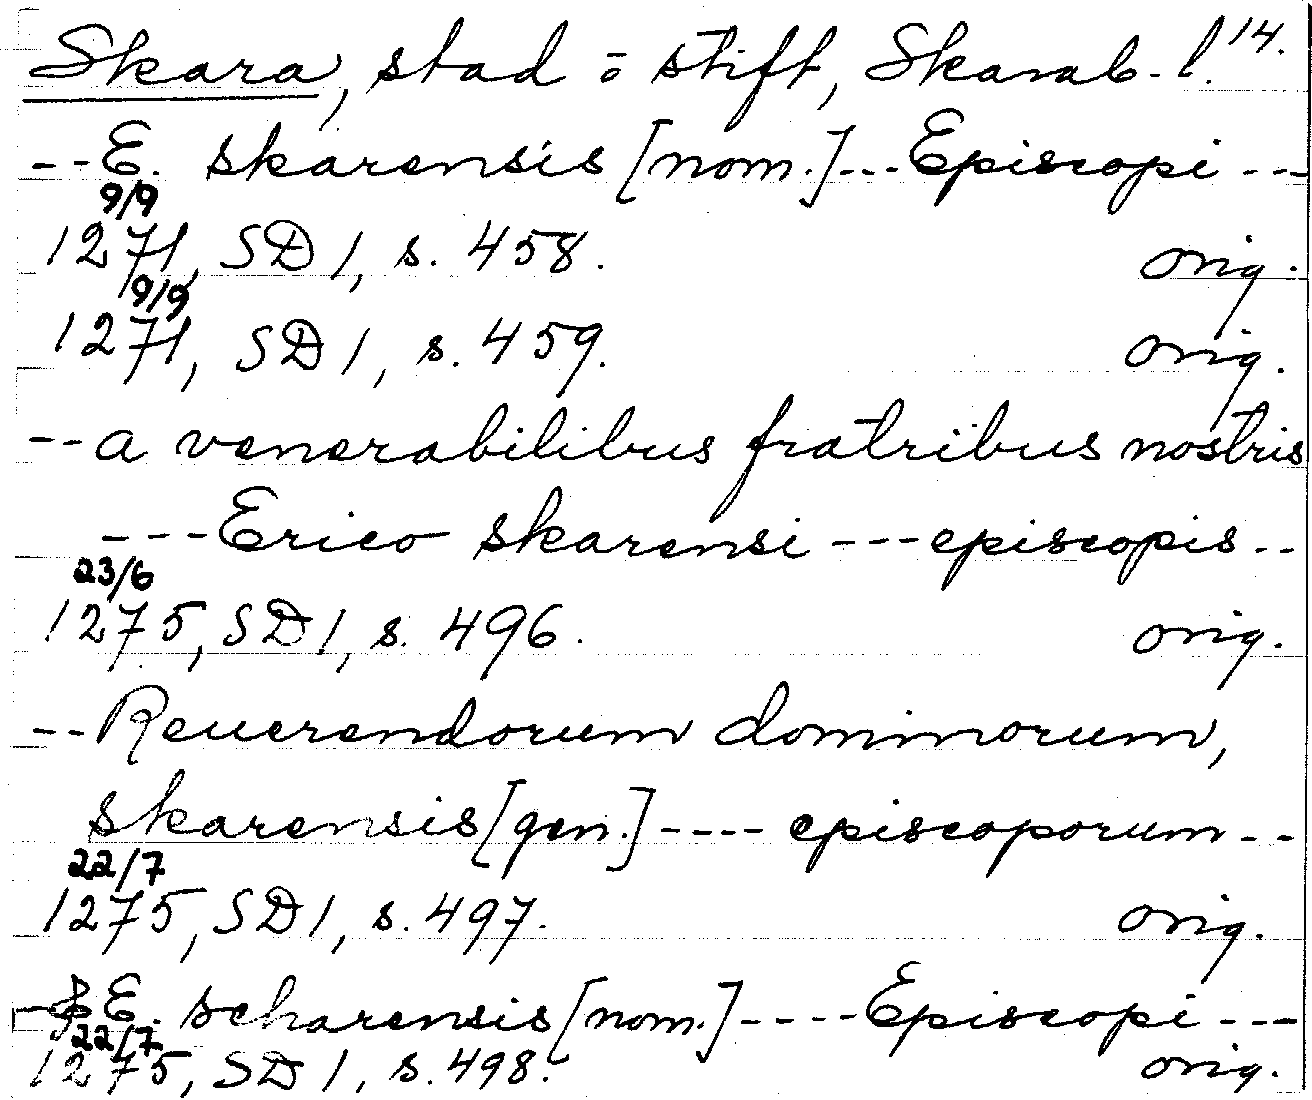 Skara, stad o stift, Skarab. l. 14.
--E. skarensis [nom.]---Episcopi---
9/9
1271, SD 1, s. 458. orig.
9/9
1271, SD 1, s. 459. orig.
--a venerabilibus fratribus nostris
---Erico skarensi---episcopis--
23/6
1275, SD 1, s. 496. orig.
--Reuerendorum dominorum,
skarensis [gen.]----episcoporum--
22/7
1275, SD 1, s. 497. orig.
-E. scharensis [nom.]----Episcopi---
22/7
1275, SD 1, s. 498. orig.